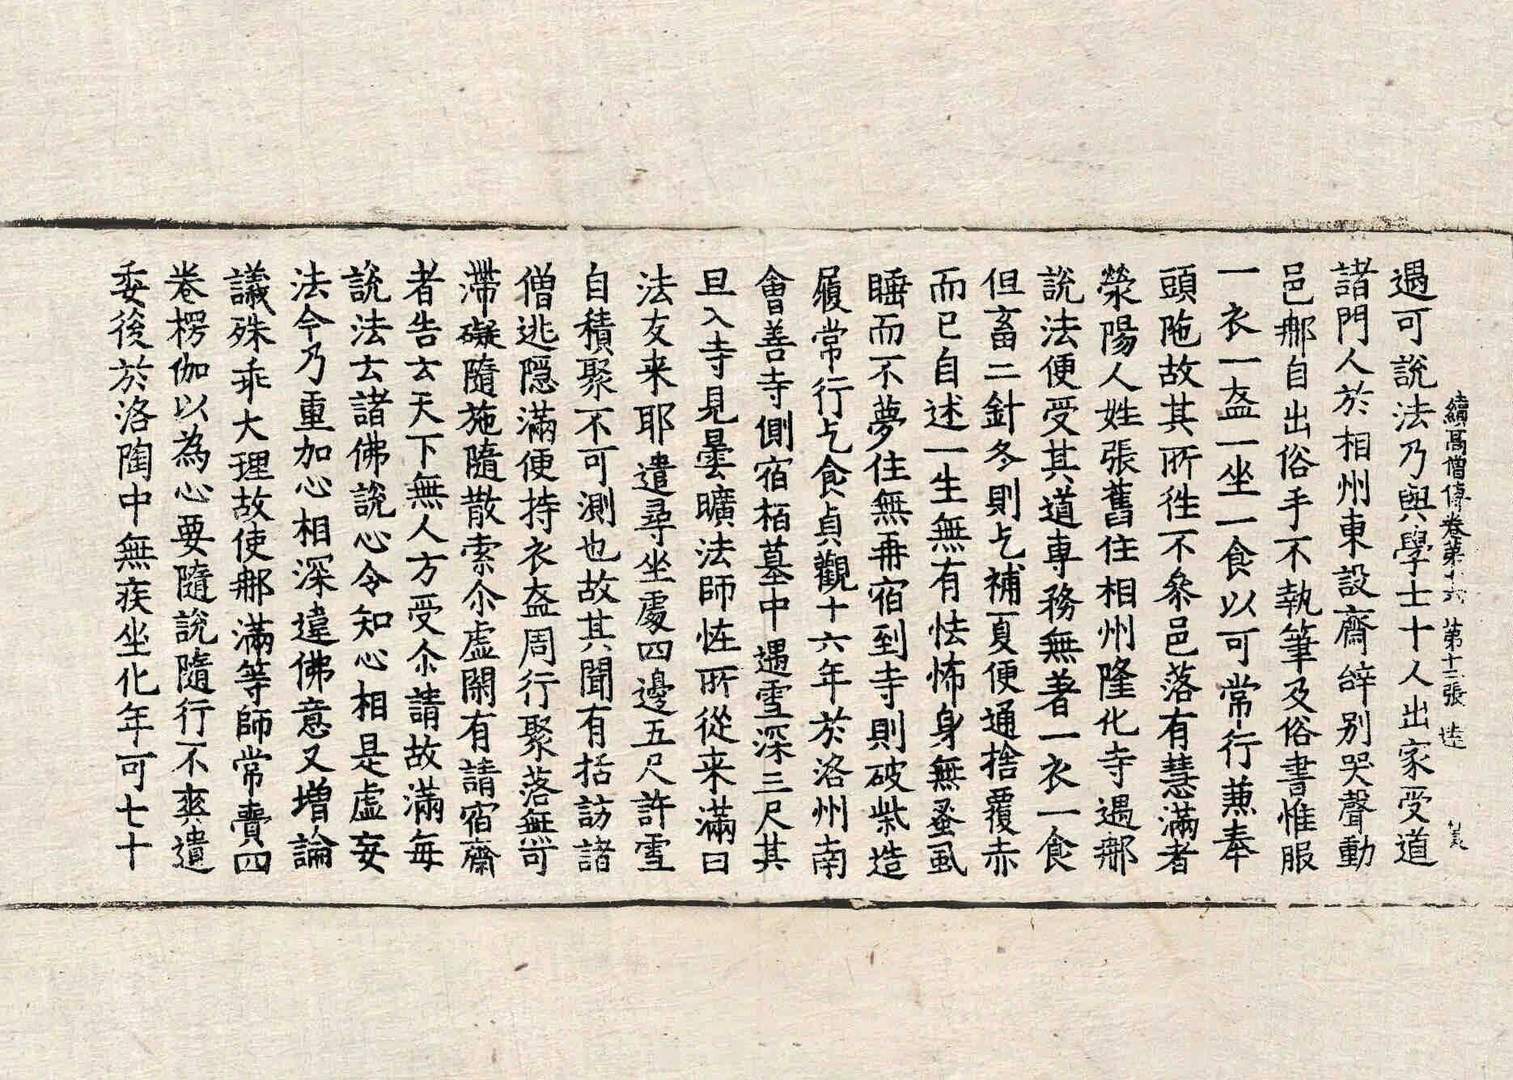 續高僧傳卷第十六 第十二張 𨕖
遇可說法乃與學士十人出家受道
諸門人於相州東設齋辝別哭聲動
邑郍自出俗手不執筆及俗書惟服
一衣一盋一坐一食以可常行兼奉
頭陁故其所徃不叅邑落有慧滿者
榮陽人姓張舊住相州隆化寺遇郍
說法便受其道專務無著一衣一食
但畜二針冬則乞補夏便通捨覆赤
而已自述一生無有怯怖身無蚤虱
睡而不夢住無再宿到寺則破柴造
履常行乞食貞觀十六年於洛州南
會善寺側宿栢墓中遇雪深三尺其
旦入寺見曇曠法師恠所從来滿曰
法友来耶遣尋坐處四邊五尺許雪
自積聚不可測也故其聞有括訪諸
僧逃隱滿便持衣盋周行聚落無可
滯礙隨施隨散索尒虛閑有請宿齋
者告云天下無人方受尒請故滿每
說法云諸佛說心令知心相是虛妄
法今乃重加心相深違佛意又增論
議殊乖大理故使郍滿等師常賫四
卷楞伽以為心要隨說隨行不爽遺
委後於洛陶中無疾坐化年可七十